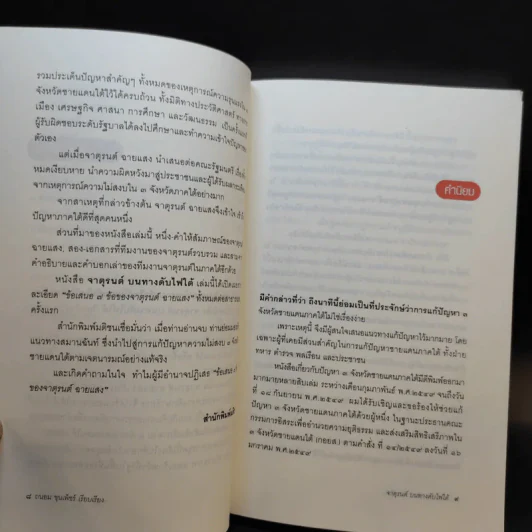 รวมประเด็นปัญหาสำคัญๆ ทั้งหมดของเหตุการณ์ความรุนแรงใน ๓
จังหวัดชายแดนใต้ไว้ได้ครบถ้วน ทั้งมิติทางประวัติศาสตร์
เมือง เศรษฐกิจ ศาสนา การศึกษา และวัฒนธรรม เป็นครั้งแรกที่
ผู้รับผิดชอบระดับรัฐบาลได้ลงไปศึกษาและทำความเข้าใจปัญหา
ตัวเอง
แต่เมื่อจาตุรนต์ ฉายแสง นำเสนอต่อคณะรัฐมนตรี
หมดเงียบหาย นำความผิดหวังมาสู่ประชาชนและผู้ได้รับ
จากเหตุการณ์ความไม่สงบใน ๓ จังหวัดภาคใต้อย่างมาก
จากสาเหตุที่กล่าวข้างต้น จาตุรนต์ ฉายแสงจึงเข้าใจ
ปัญหาภาคใต้ดีที่สุดคนหนึ่ง
ส่วนที่มาของหนังสือเล่มนี้ หนึ่ง-คำให้สัมภาษณ์ของจาตุรนต์
ฉายแสง, สอง-เอกสารที่ทีมงานของจาตุรนต์รวบรวม
คำอธิบายและคำบอกเล่าของทีมงานจาตุรนต์ในภาคใต้อีกด้วย
หนังสือ จาตุรนต์ บนทางดับไฟใต้ เล่มนี้ได้เปิดเผย
ละเอียด "ข้อเสนอ ๘ ข้อของจาตุรนต์ ฉายแสง" ทั้งหมดต่อสาธารณะ
ครั้งแรก
สำนักพิมพ์มติชนเชื่อมั่นว่า เมื่อท่านอ่านจบ ท่านย่อมมอง
แนวทางสมานฉันท์ ซึ่งนำไปสู่การแก้ปัญหาความไม่สงบ ๓ จังหวัด
ชายแดนใต้ตามเจตนารมณ์อย่างแท้จริง
และเกิดคำถามในใจ ทำไมผู้มีอำนาจปฏิเสธ "ข้อเสนอ
ของจาตุรนต์ ฉายแสง"
สำนักพิมพ์มติชน
๘ เรียบเรียง
คำนิยม
มีคำกล่าวที่ว่า ถึงนาทีนี้ย่อมเป็นที่ประจักษ์ว่าการแก้ปัญหา ๓
จังหวัดชายแดนภาคใต้ไม่ใช่เรื่องง่าย
เพราะเหตุนี้ จึงมีผู้สนใจเสนอแนวทางแก้ปัญหาไว้มากมาย โดย
เฉพาะผู้ที่เคยมีส่วนสำคัญในการแก้ปัญหาชายแดนภาคใต้ ทั้งฝ่าย
ทหาร ตำรวจ พลเรือน และประชาชน
หนังสือเกี่ยวกับปัญหา ๓ จังหวัดชายแดนภาคใต้มีตีพิมพ์ออกมา
มากมายหลายสิบเล่ม ระหว่างเดือนกุมภาพันธ์ พ.ศ.๒๕๔๙ จนถึงวัน
ที่ ๑๔ กันยายน พ.ศ.๒๕๔๙ ผมได้รับเชิญและขอร้องให้ช่วยแก้
ปัญหา ๓ จังหวัดชายแดนภาคใต้ด้วยผู้หนึ่ง ในฐานะประธานคณะ
กรรมการอิสระเพื่ออำนวยความยุติธรรม และส่งเสริมสิทธิเสรีภาพใน
๓ จังหวัดชายแดนใต้ (กอยส.) ตามคำสั่ง ที่ ๑๔/๒๕๔๙ ลงวันที่ ๑๖
มกราคม พ.ศ.๒๕๔๙
จาตุรนต์ บนทางดับไฟใต้ ๙